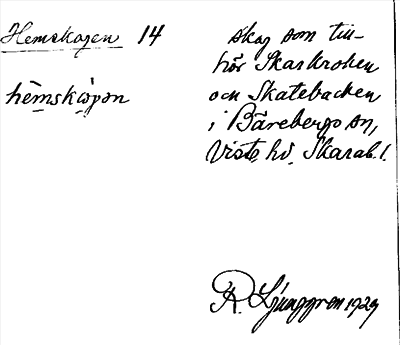 Hemskogen 14
hèmskò̱gɔn
skog som till-
hör Skarkroken
och Skatebacken
i Bärebergs sn,
Viste hd. Skarab. l.
R. Ljunggren 1929